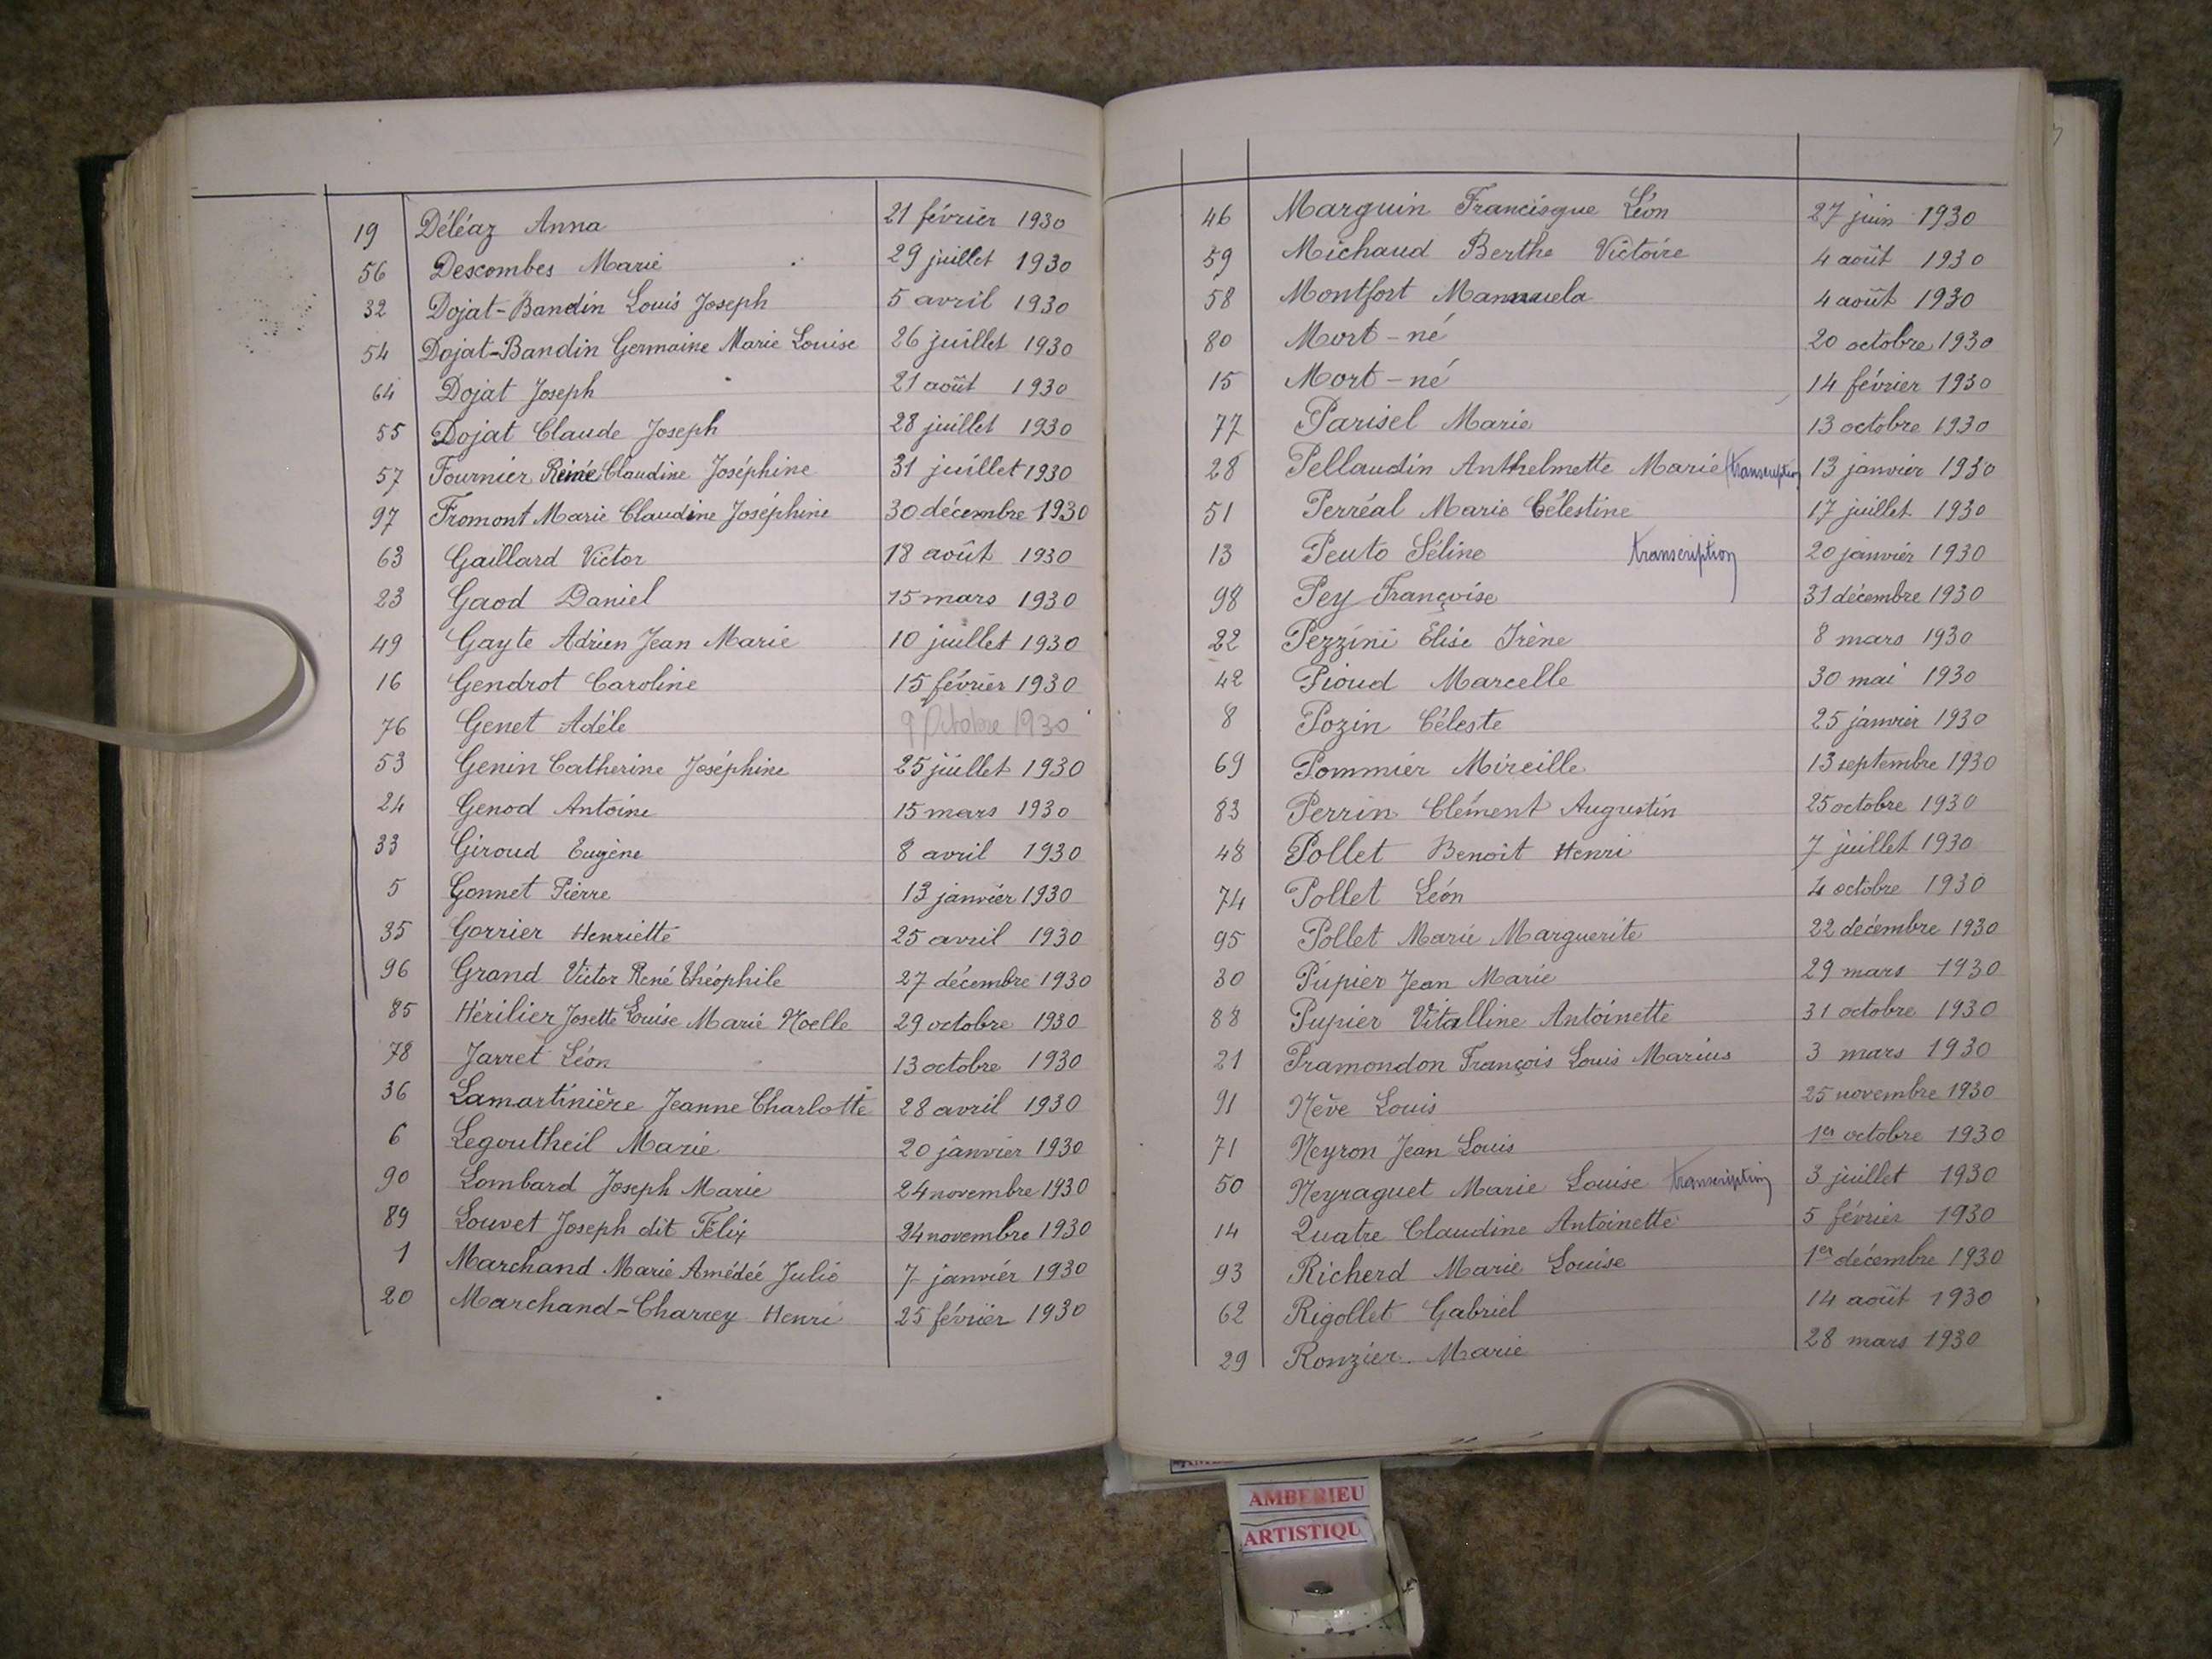 19 Déléaz Anna 21 février 1930
56 Descombes Marie 29 juillet 1930
32 Dojat-Bandin Louis Joseph 5 avril 1930
54 Dojat-Bandin Germaine Marie Louise 26 juillet 1930
64 Dojat Joseph 21 août 1930
55 Dojat Claude Joseph 28 juillet 1930
57 Fournier Reine Claudine Joséphine 31 juillet 1930
97 Fromont Marie Claudine Joséphine 30 décembre 1930
63 Gaillard Victor 18 août 1930
23 Gaod Daniel 15 mars 1930
49 Gayte Adrien Jean Marie 10 juillet 1930
16 Gendrot Caroline 15 février 1930
76 Genet Adéle 9 octobre 1930
53 Genin Catherine Joséphine 25 juillet 1930
24 Genod Antoine 15 mars 1930
33 Giroud Eugène 8 avril 1930
5 Gonnet Pierre 13 janvier 1930
35 Gorrier Henriette 25 avril 1930
96 Grand Victor René Théophile 27 décembre 1930
85 Hérilier Josette Louise Marie Noelle 29 octobre 1930
78 Jarret Léon 13 octobre 1930
36 Lamartinière Jeanne Charlotte 28 avril 1930
6 Legoutheil Marie 20 janvier 1930
90 Lombard Joseph Marie 24 novembre 1930
89 Louvet Joseph dit Félix 24 novembre 1930
1 Marchand Marie Amédéé Julie 7 janvier 1930
20 Marchand-Charrey Henri 25 février 1930
46 Marguin Francisque Léon 27 juin 1930
59 Michaud Berthe Victoire 4 août 1930
58 Montfort Mannuela 4 août 1930
80 Mort-né 20 octobre 1930
15 Mort-né 14 février 1930
77 Parisel Marie 13 octobre 1930
28 Pellaudin Anthelmette Marie (transcription 13 janvier 1930
51 Perréal Marie Célestine 17 juillet 1930
13 Peuto Séline transcription 20 janvier 1930
98 Pey Françoise 31 décembre 1930
22 Pezzini Elise Irène 8 mars 1930
42 Pioud Marcelle 30 mai 1930
8 Pozin Céleste 25 janvier 1930
69 Pommier Mireille 13 septembre 1930
83 Perrin Clément Augustin 25 octobre 1930
48 Pollet Benoit Henri 7 juillet 1930
74 Pollet Léon 4 octobre 1930
95 Pollet Marie Marguerite 22 décembre 1930
30 Pupier Jean Marie 29 mars 1930
88 Pupier Vitalline Antoinette 31 octobre 1930
21 Pramondon François Louis Marius 3 mars 1930
91 Nève Louis 25 novembre 1930
71 Neyron Jean Louis 1er octobre 1930
50 Neyraguet Marie Louise transcription 3 juillet 1930
14 Quatre Claudine Antoinette 5 février 1930
93 Richerd Marie Louise 1er décembre 1930
62 Rigollet Gabriel 14 août 1930
29 Ronzier Marie 28 mars 1930
AMBERIEU
ARTISTIQU